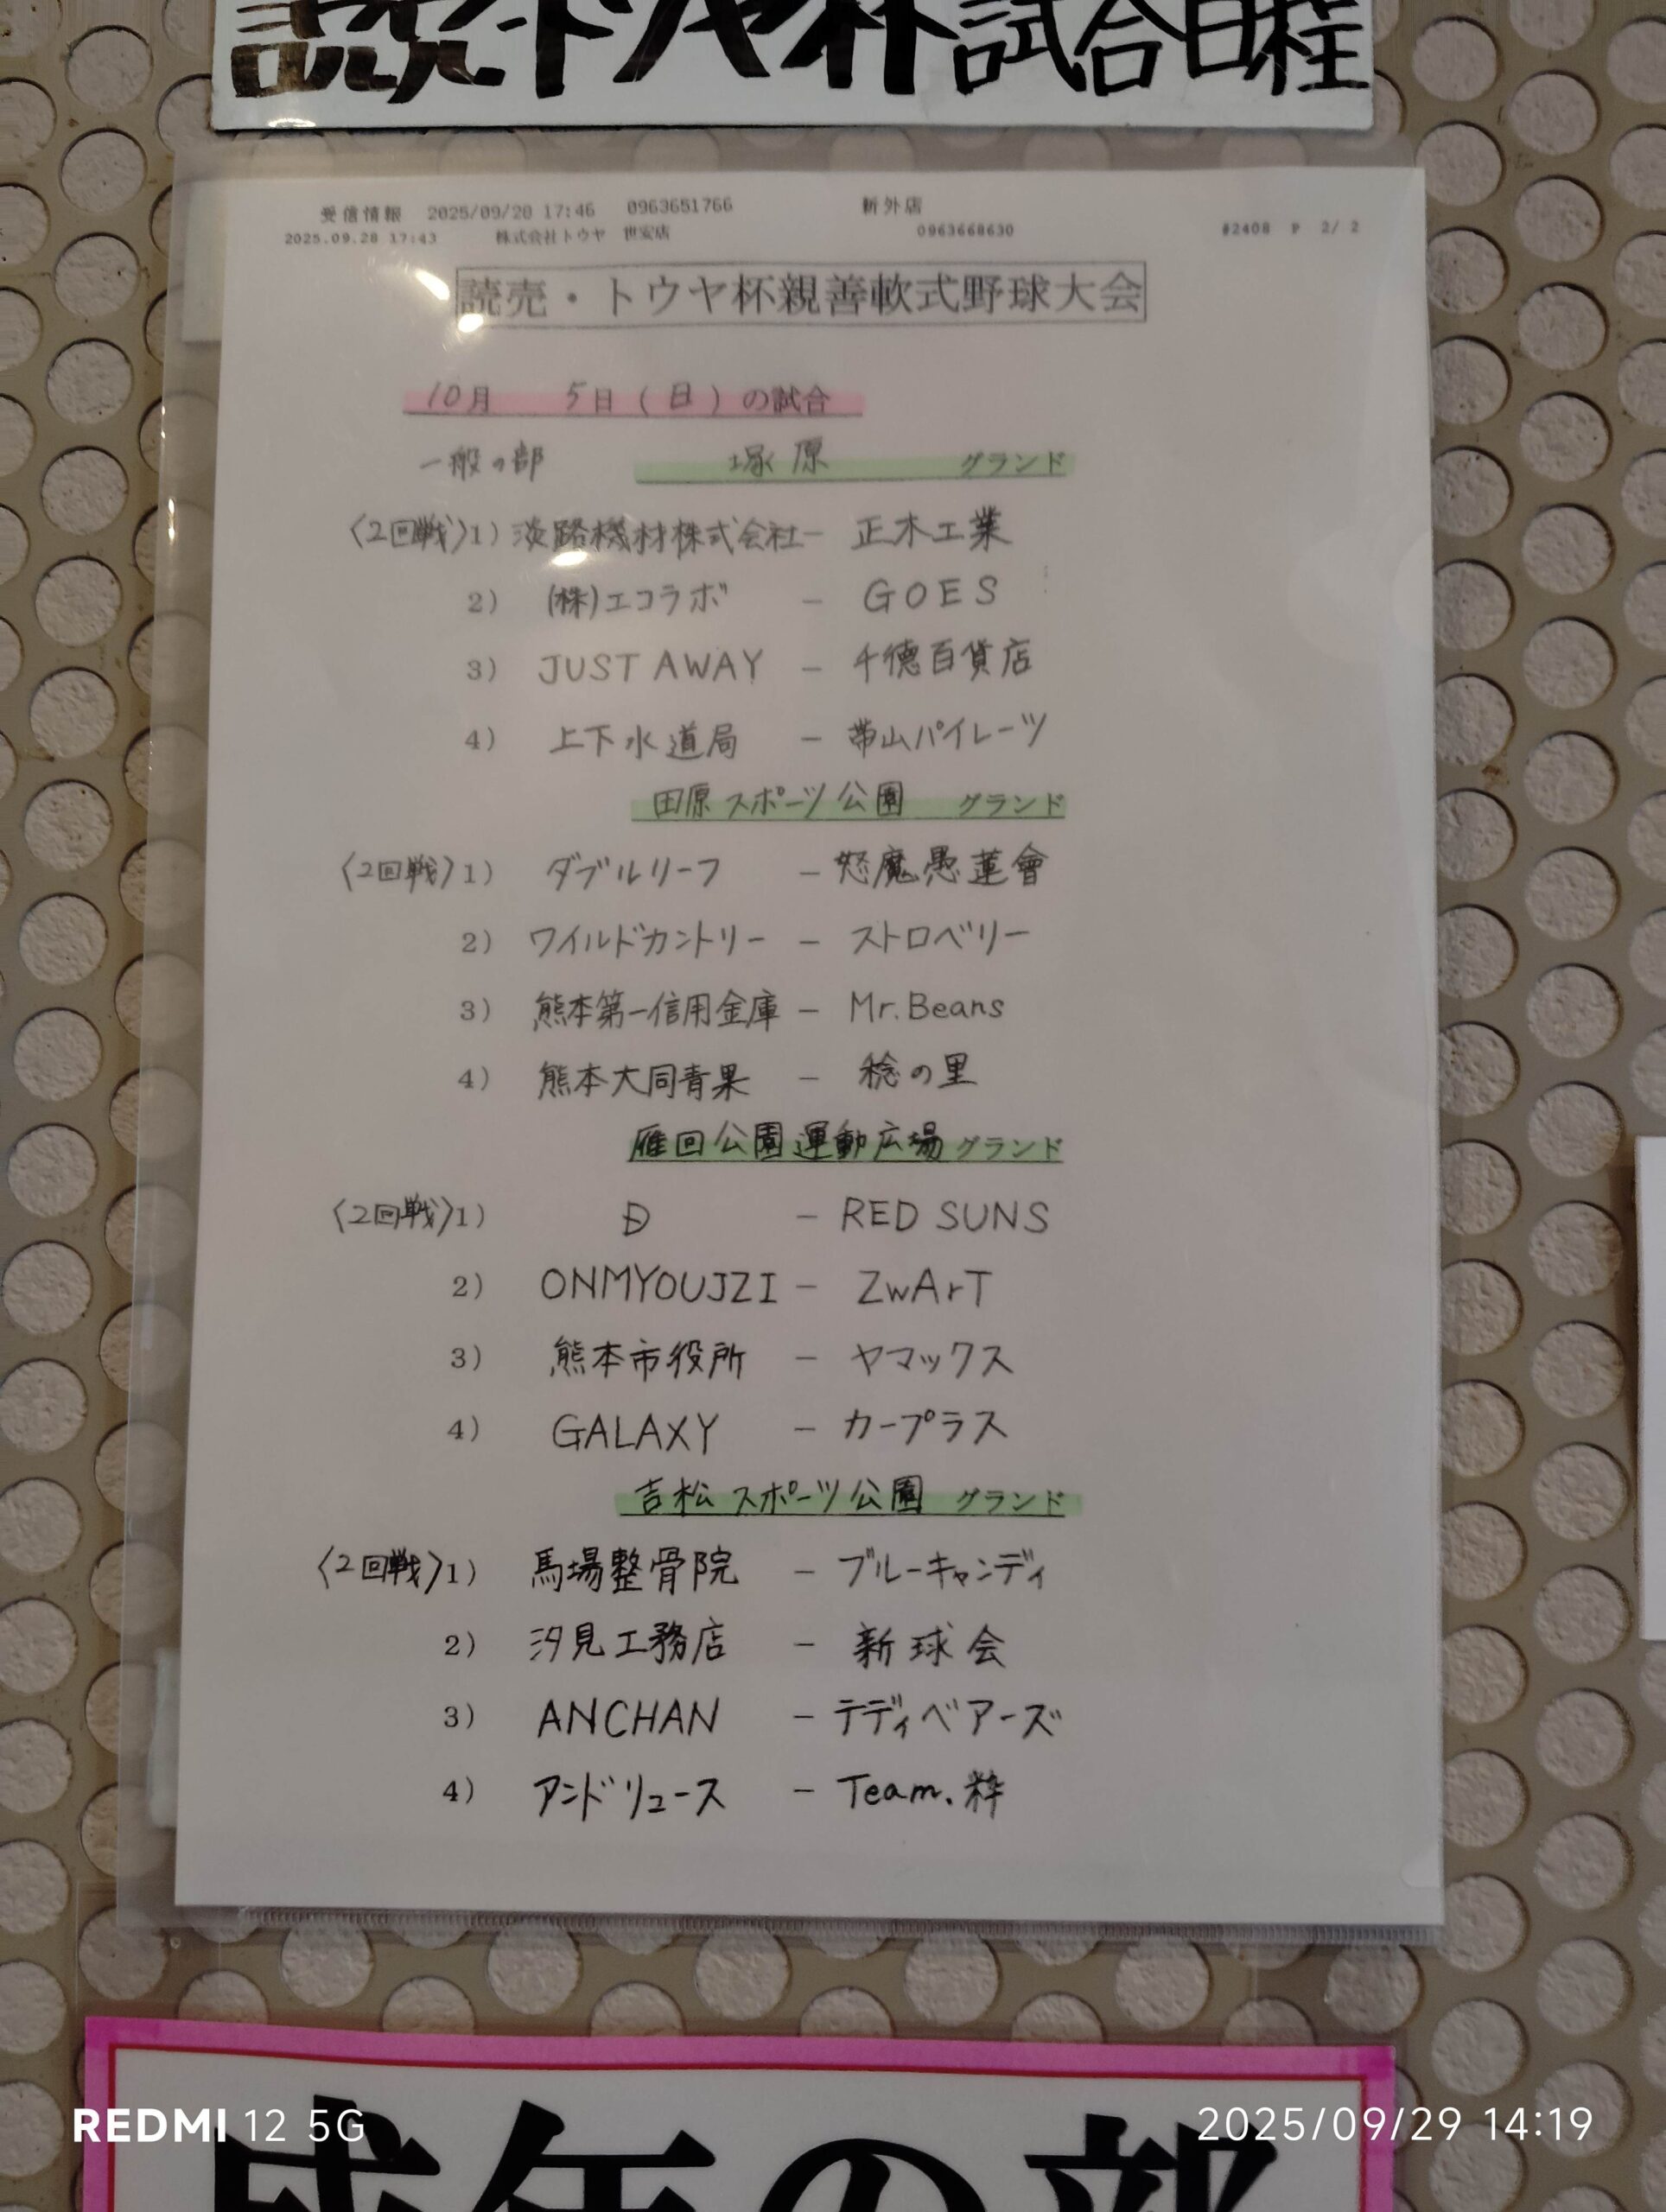 読売トウヤ杯試合日程
受信情報 2025/09/28 17:46 0963651766 新外店
2025.09.28 17:43 株式会社トウヤ 世安店 0963668630 #2408 P 2/ 2
読売・トウヤ杯親善軟式野球大会
10月 5日(日)の試合
一般の部 塚原 グランド
〈2回戦〉1) 淡路機材株式会社 - 正木工業
2) (株)エコラボ - GOES
3) JUST AWAY - 千徳百貨店
4) 上下水道局 - 帯山パイレーツ
田原スポーツ公園 グランド
〈2回戦〉1) ダブルリーフ - 怒魔愚蓮會
2) ワイルドカントリー - ストロベリー
3) 熊本第一信用金庫 - Mr.Beans
4) 熊本大同青果 - 稔の里
雁回公園運動広場 グランド
〈2回戦〉1) Đ - RED SUNS
2) ONMYOUJZI - ZwArT
3) 熊本市役所 - ヤマックス
4) GALAXY - カープラス
吉松スポーツ公園 グランド
〈2回戦〉1) 馬場整骨院 - ブルーキャンディ
2) 汐見工務店 - 新球会
3) ANCHAN - テディベアーズ
4) アンドリュース - Team.粋
成年の部
REDMI 12 5G
2025/09/29 14:19